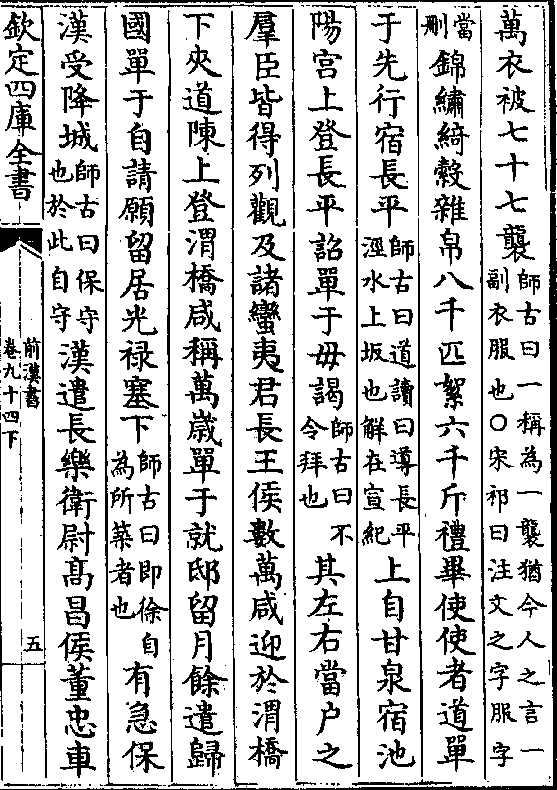 萬衣被七十七襲師古曰一稱為一襲猶今人之言一副衣服也○宋祁曰注文之字服字
當刪錦繡綺縠雜帛八千匹絮六千斤禮畢使使者道單
于先行宿長平師古曰道讀曰導長平涇水上坂也解在宣紀上自甘泉宿池
陽宫上登長平詔單于毋謁師古曰不令拜也其左右當户之
羣臣皆得列觀及諸蠻夷君長王侯數萬咸迎於渭橋
下夾道陳上登渭橋咸稱萬歲單于就邸留月餘遣歸
國單于自請願留居光禄塞下師古曰即徐自為所築者也有急保
漢受降城師古曰保守也於此自守漢遣長樂衛尉髙昌侯董忠車
欽定四庫全書
前漢書
卷九十四下
五